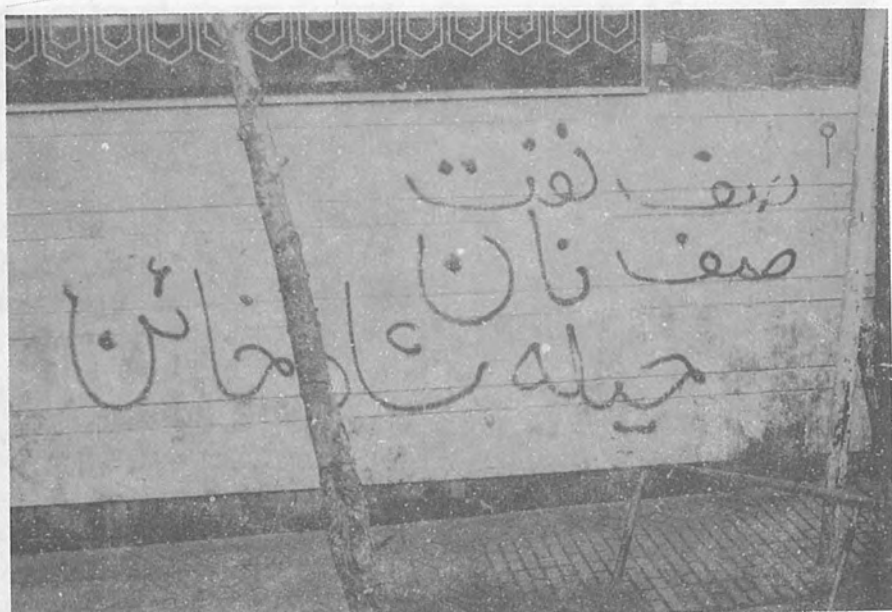 صف نفت
صف نان
حیله شاه خائن